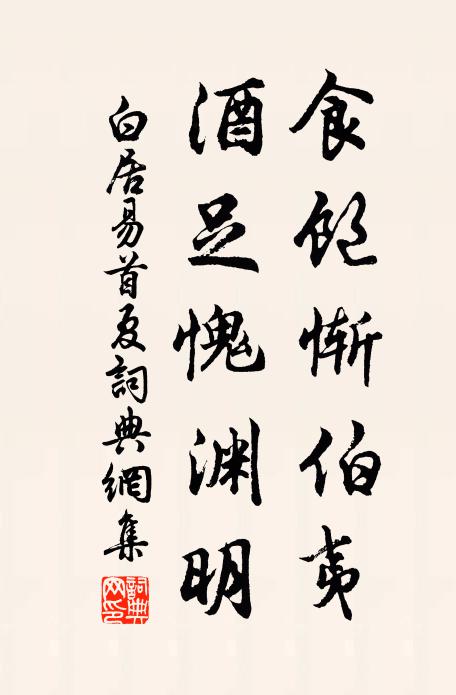 食飽慚伯夷
酒足愧渊明
白居易首夏詞典網集
詞典网印